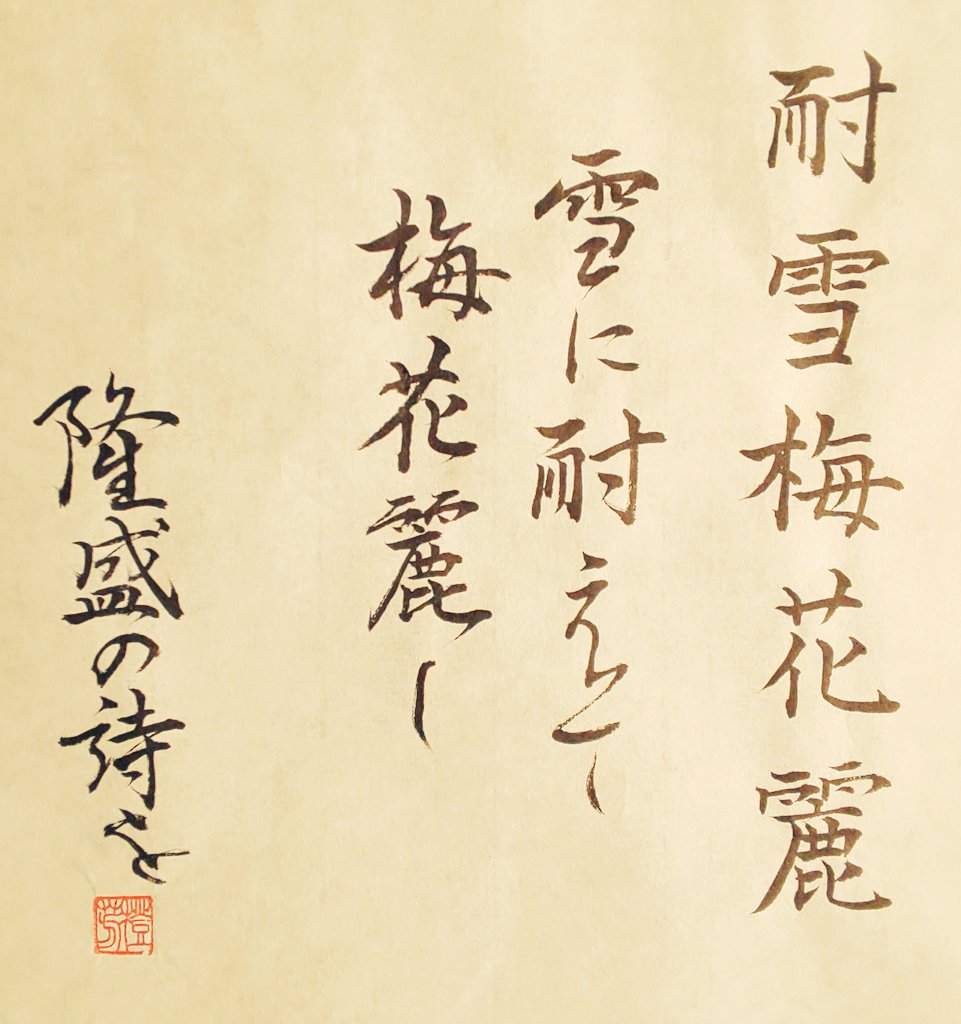 耐雪梅花麗
雪に耐えて
梅花麗し
隆盛の詩を